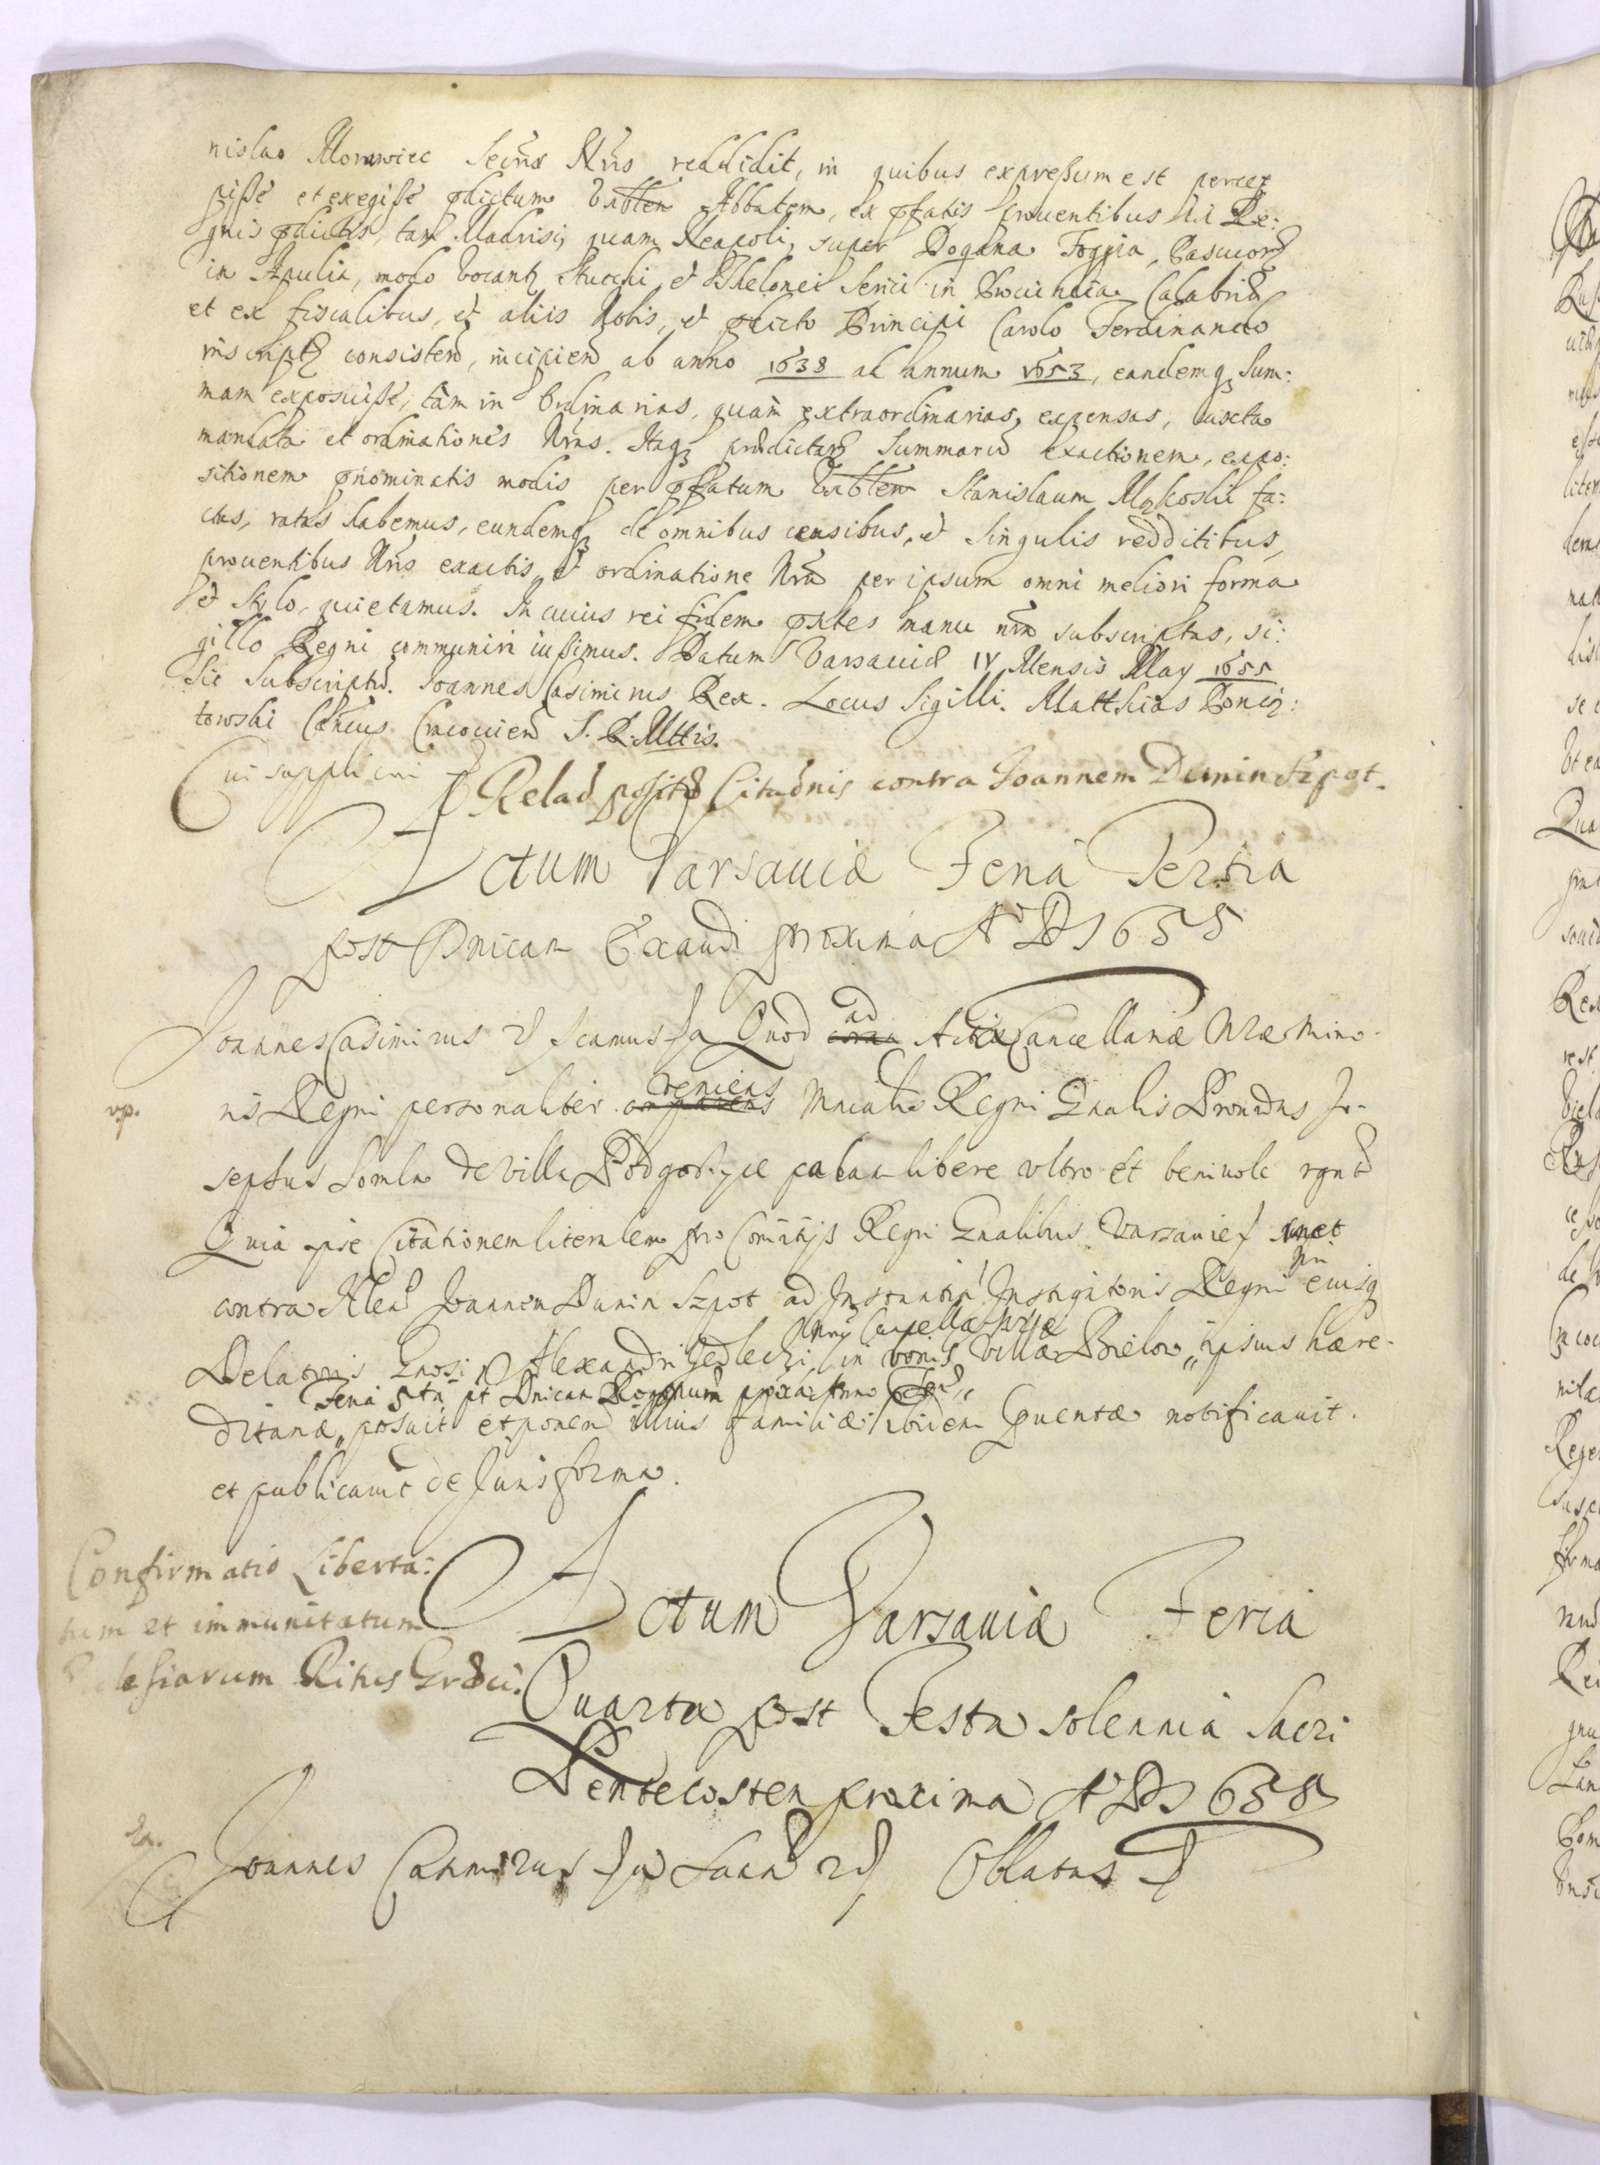 nislao Morawiec Secrus Nris reddidit, in quibus expressum est perce-
pisse et exegisse pdictum Vrblem Abbatem, ex pfatis prouentibus in Re:
gnis pdictis, tam Madrisij quam Neapoli, super Dogana Foggia, Pascuorũ
in Apulia, modo vocant Stucchi, et Thelonei Serici in Prouincia Calabriæ
et ex fiscalibus, et aliis Nobis, et pdicto Principi Carolo Ferdinando
inscript consisten, incipien ab anno 1638 ad annum 1653, eandemq Sum:
mam exposuisse, tàm in Ordinarias, quam extraordinarias expensas, iuxta
mandata et ordinationes Nras. Itaq prædictarũ Summarũ exactionem, expo:
sitionem pnominatis modis per pfatum Vrblem Stanislaum Mskoski fa:
ctas, ratas habemus, eundemq de omnibus censibus, et Singulis reddititus,
prouentibus Nris exactis, et ordinatione Nra per ipsum omni meliori forma
et stylo, quietamus. In cuius rei fidem pntes manu nra subscriptas, si:
gillo Regni communiri iussimus. Datum Varsauiæ IV Mensis May 1655
Sic Subscriptũ. Joannes Casimirus Rex. Locus Sigilli. Matthias Ponię:
towski Cancus Cracouien S. R. Mttis.
Relao positæ Citaonis contra Joannem Dunin Szpot.
Actum Varsauiæ Feria Tertia
post Dnicam Exaudi proxima A D 1655
Joannes Casimirus Quod ad Acta Cancellariæ Nræ Mino-
vp. ris Regni personaliter veniens Mnialis Regni Gnalis Prouidus Jo-
sephus Somla de Villa Podgorzyce palam libere vltro et beniuole rgnt
Quia ipse Citationem literalem pro Comitijs Regni Gnalibus Varsauie
contra Joannem Dunin Szpot ad Instantia Instigatoris Regni eiusq
Delatoris Gnosi Alexandri in bonis Villæ Bielow ipsius hære-
Feria 5ta pt Dnicam Rogonum pxia Anno
ditariæ, posuit et ponen illius familiæ ibidem notificauit
et publicauit de Juris forma.
Confirmatio Liberta:
tum et immunitatum
Ecclesiarum Ritus Græci.
Actum Varsauiæ Feria
Quarta post Festa solennia Sacri
Pentecosten proxima A D 1655
Joannes Casimirus Oblatus